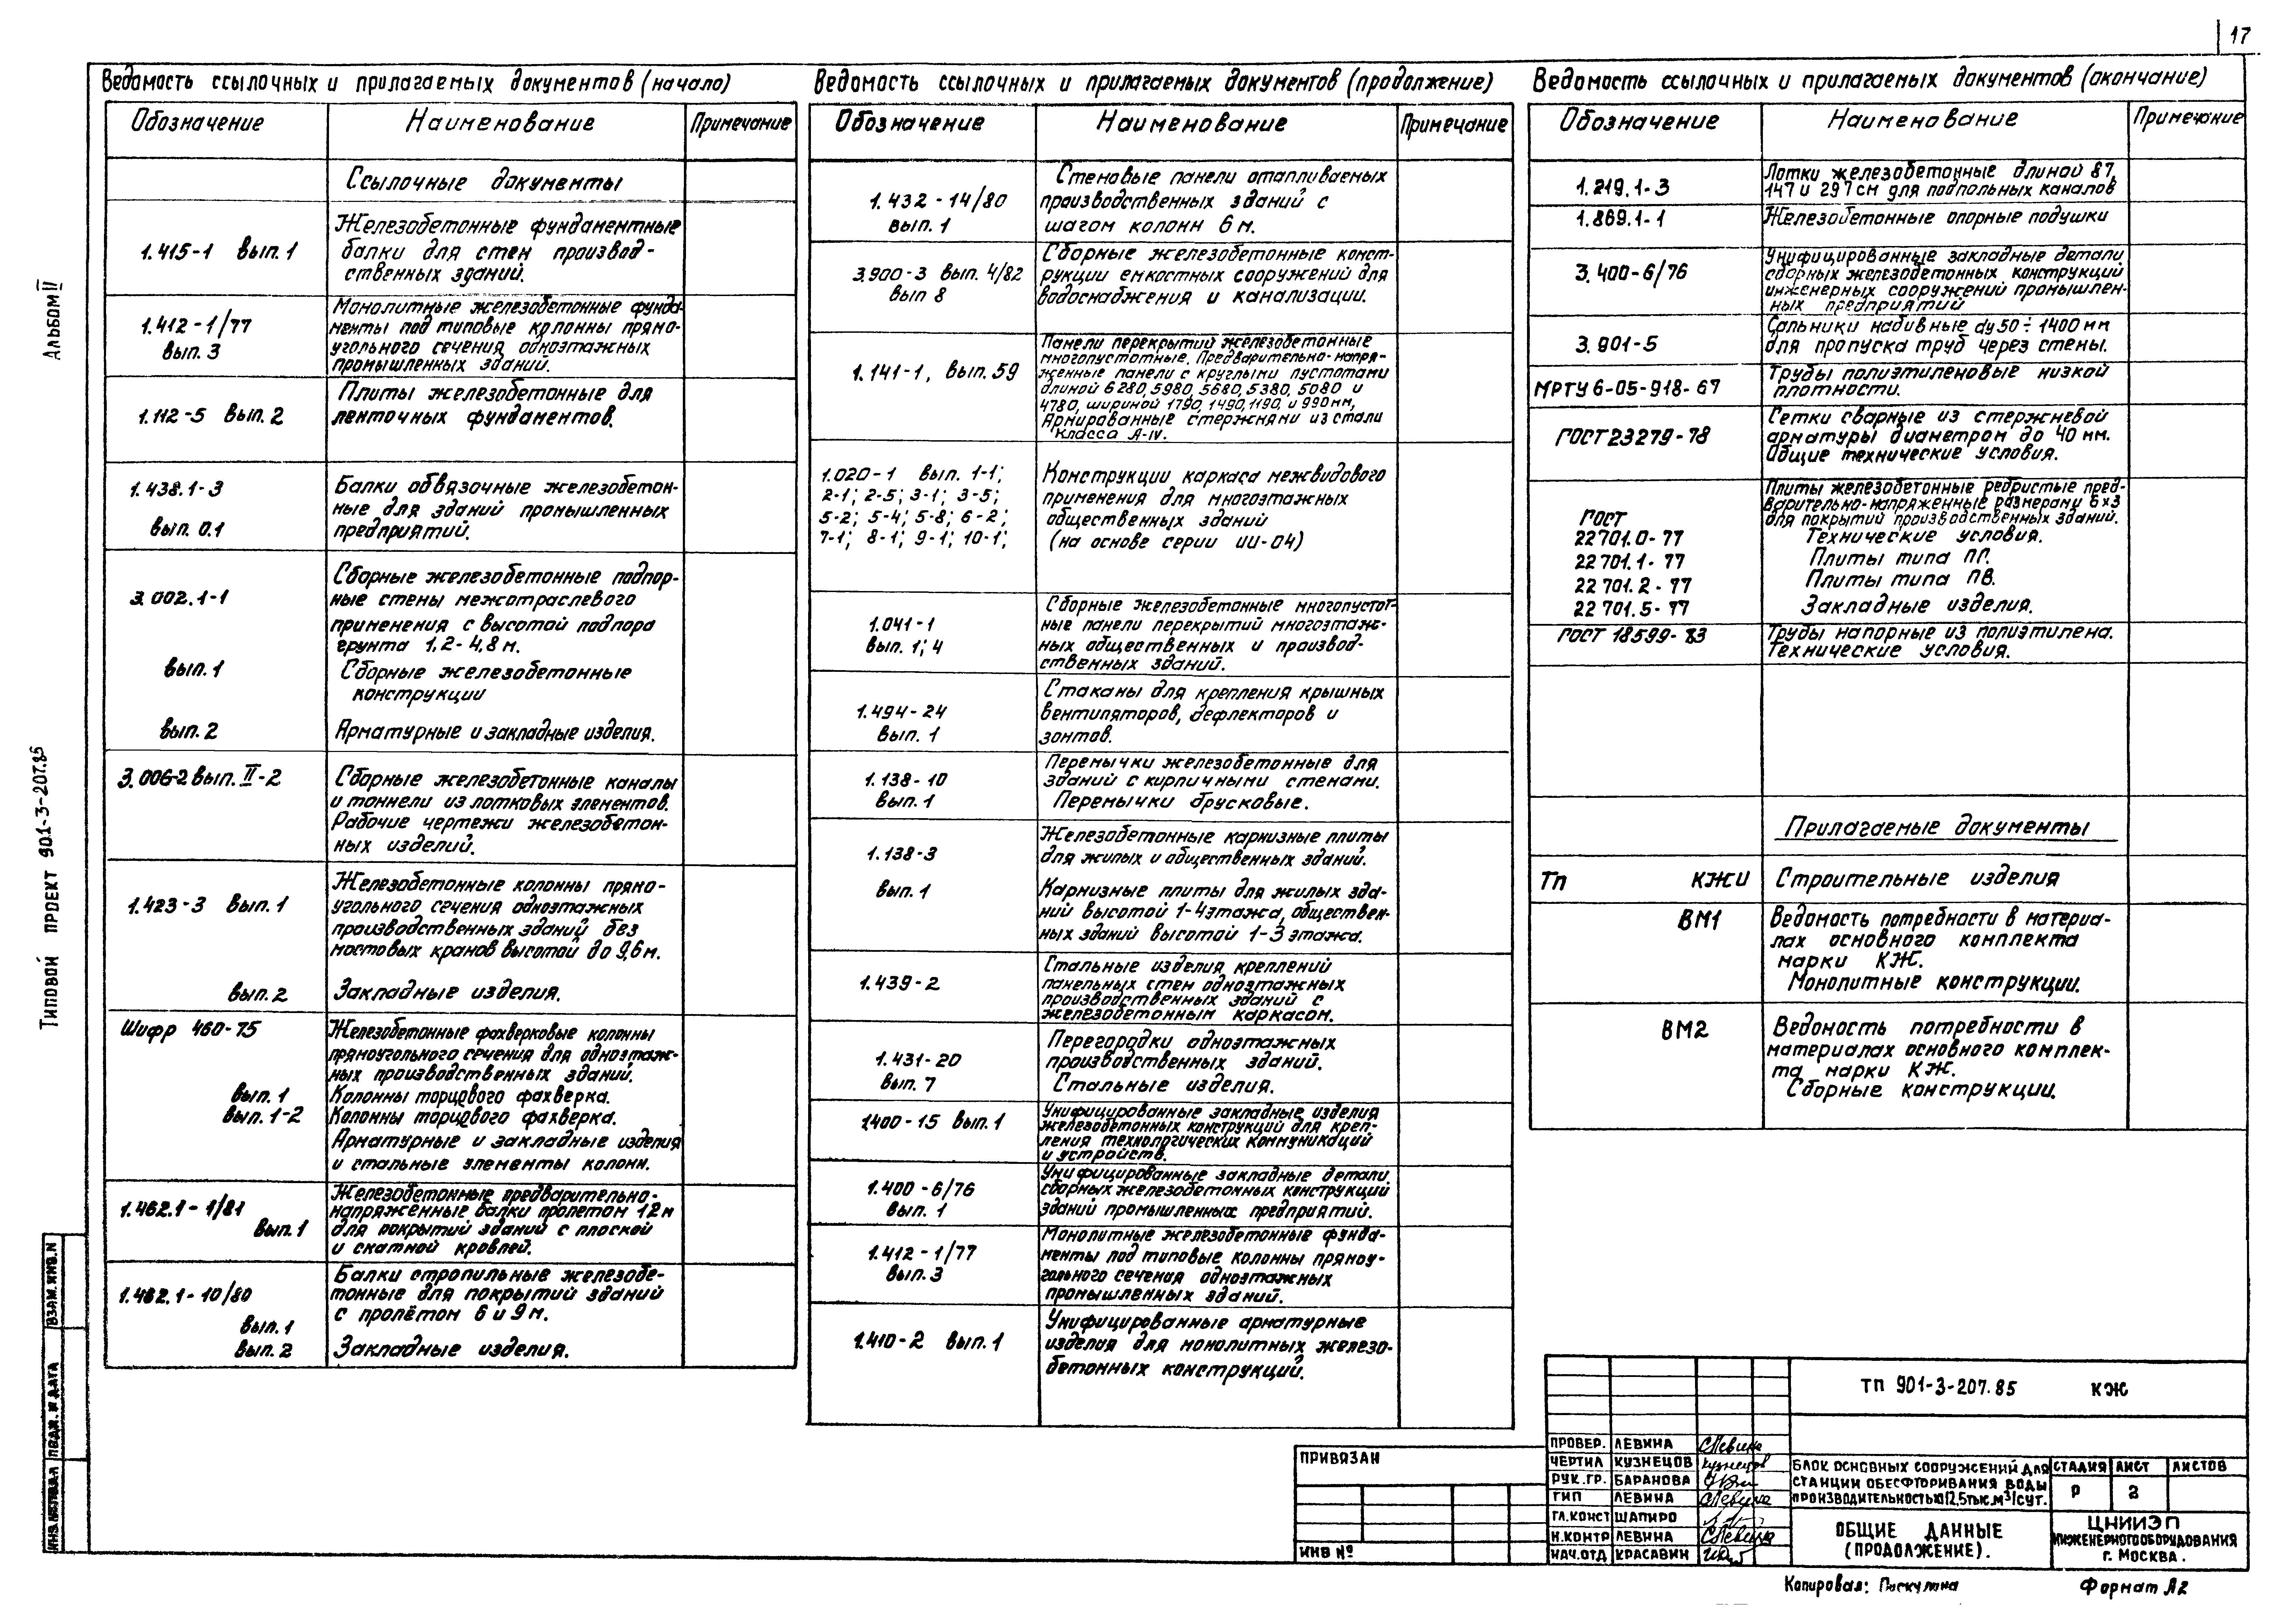 17
Ведомость ссылочных и прилагаемых документов (начало)
Обозначение Наименование Примечание
Ссылочные документы
1.415-1 вып. 1
Железобетонные фундаментные
балки для стен производ-
ственных зданий.
1.412-1/77
вып. 3
Монолитные железобетонные фунда-
менты под типовые колонны прямо-
угольного сечения одноэтажных
промышленных зданий.
1.112-5 вып. 2
Плиты железобетонные для
ленточных фундаментов.
1.438.1-3
вып. 0.1
Балки обвязочные железобетон-
ные для зданий промышленных
предприятий.
3.002.1-1
Сборные железобетонные подпор-
ные стены межотраслевого
применения с высотой подпора
грунта 1,2-4,8 м.
вып. 1
Сборные железобетонные
конструкции
вып. 2
Арматурные и закладные изделия.
3.006-2 вып. II-2
Сборные железобетонные каналы
и тоннели из лотковых элементов.
Рабочие чертежи железобетон-
ных изделий.
1.423-3 вып. 1
Железобетонные колонны прямо-
угольного сечения одноэтажных
производственных зданий без
мостовых кранов высотой до 9,6 м.
вып. 2
Закладные изделия.
Шифр 460-75
Железобетонные фахверковые колонны
прямоугольного сечения для одноэтаж-
ных производственных зданий.
вып. 1 Колонны торцового фахверка.
вып. 1-2 Колонны торцового фахверка.
Арматурные и закладные изделия
и стальные элементы колонн.
1.462.1-1/81
вып. 1
Железобетонные предварительно-
напряженные балки пролетом 12 м
для покрытий зданий с плоской
и скатной кровлей.
1.462.1-10/80
вып. 1
Балки стропильные железобе-
тонные для покрытий зданий
с пролётом 6 и 9 м.
вып. 2
Закладные изделия.
Ведомость ссылочных и прилагаемых документов (продолжение)
Обозначение Наименование Примечание
1.432-14/80
вып. 1
Стеновые панели отапливаемых
производственных зданий с
шагом колонн 6 м.
3.900-3 вып. 4/82
вып 8
Сборные железобетонные конст-
рукции емкостных сооружений для
водоснабжения и канализации.
1.141-1, вып. 59
Панели перекрытий железобетонные
многопустотные. Предварительно-напря-
женные панели с круглыми пустотами
длиной 6280, 5980, 5680, 5380, 5080 и
4780, шириной 1790, 1490, 1190, и 990 мм,
Армированные стержнями из стали
класса А-IV.
1.020-1 вып. 1-1;
2-1; 2-5; 3-1; 3-5;
5-2; 5-4; 5-8; 6-2;
7-1; 8-1; 9-1; 10-1;
Конструкции каркаса межвидового
применения для многоэтажных
общественных зданий
(на основе серии ИИ-04)
1.041-1
вып. 1; 4
Сборные железобетонные многопустот-
ные панели перекрытий многоэтаж-
ных общественных и производ-
ственных зданий.
1.494-24
вып. 1
Стаканы для крепления крышных
вентиляторов, дефлекторов и
зонтов.
1.138-10
вып. 1
Перемычки железобетонные для
зданий с кирпичными стенами.
Перемычки брусковые.
1.138-3
Железобетонные карнизные плиты
для жилых и общественных зданий.
вып. 1
Карнизные плиты для жилых зда-
ний высотой 1-4 этажа, обществен-
ных зданий высотой 1-3 этажа.
1.439-2
Стальные изделия креплений
панельных стен одноэтажных
производственных зданий с
железобетонным каркасом.
1.431-20
вып. 7
Перегородки одноэтажных
производственных зданий.
Стальные изделия.
1.400-15 вып. 1
Унифицированные закладные изделия
железобетонных конструкций для креп-
ления технологических коммуникаций
и устройств.
1.400-6/76
вып. 1
Унифицированные закладные детали
сборных железобетонных конструкций
зданий промышленных предприятий.
1.412-1/77
вып. 3
Монолитные железобетонные фунда-
менты под типовые колонны прямоу-
гольного сечения одноэтажных
промышленных зданий.
1.410-2 вып. 1
Унифицированные арматурные
изделия для монолитных железо-
бетонных конструкций.
Ведомость ссылочных и прилагаемых документов (окончание)
Обозначение Наименование Примечание
1.219.1-3
Лотки железобетонные длиной 87,
147 и 297 см для подпольных каналов
1.869.1-1 Железобетонные опорные подушки
3.400-6/76
Унифицированные закладные детали
сборных железобетонных конструкций
инженерных сооружений промышлен-
ных предприятий
3.901-5
Сальники набивные dy 50÷1400 мм
для пропуска труб через стены.
МРТУ 6-05-918-67
Трубы полиэтиленовые низкой
плотности.
ГОСТ 23279-78
Сетки сварные из стержневой
арматуры диаметром до 40 мм.
Общие технические условия.
ГОСТ
Плиты железобетонные ребристые пред-
варительно-напряженные размерами 6х3
для покрытий производственных зданий.
22701.0-77 Технические условия.
22701.1-77 Плиты типа ПГ.
22701.2-77 Плиты типа ПВ.
22701.5-77 Закладные изделия.
ГОСТ 18599-83
Трубы напорные из полиэтилена.
Технические условия.
Прилагаемые документы
Тп КЖИ Строительные изделия
ВМ1
Ведомость потребности в материа-
лах основного комплекта
марки КЖ.
Монолитные конструкции.
ВМ2
Ведомость потребности в
материалах основного комплек-
та марки КЖ.
Сборные конструкции.
Альбом II
Типовой проект 901-3-207.85
ВЗАМ. ИНВ. N
ПОДП. И ДАТА
ИНВ. № ПОДЛ
ПРИВЯЗАН
ИНВ №
ТП 901-3-207.85 КЖ
ПРОВЕР. ЛЕВИНА
ЧЕРТИЛ КУЗНЕЦОВ
РУК. ГР. БАРАНОВА
ГИП ЛЕВИНА
ГЛ. КОНСТ ШАПИРО
Н. КОНТР ЛЕВИНА
НАЧ. ОТД КРАСАВИН
БЛОК ОСНОВНЫХ СООРУЖЕНИЙ ДЛЯ
СТАНЦИИ ОБЕСФТОРИВАНИЯ ВОДЫ
ПРОИЗВОДИТЕЛЬНОСТЬЮ 12,5 тыс. м³/сут.
СТАДИЯ ЛИСТ ЛИСТОВ
Р 2
ОБЩИЕ ДАННЫЕ
(ПРОДОЛЖЕНИЕ).
ЦНИИЭП
ИНЖЕНЕРНОГО ОБОРУДОВАНИЯ
г. МОСКВА.
Копировал: Пискулина
Формат А2